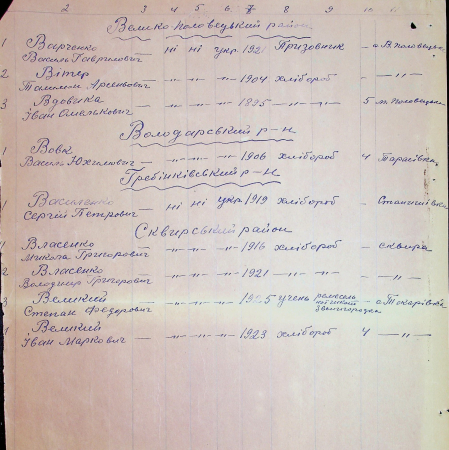 2 3 4 5 6 7 8 9 10 11
Велико-Половецький район
1 Варченко — ні ні укр. 1921 Призовник — с. В. Половецьк
Василь Гаврилович
2 Вітер — -"- -"- -"- 1904 хлібороб — -"-
Арсентович
3 Вдовика — -"- -"- -"- 1895 -"- -"- 5 м. Половецьк
Іван Омелькович
Володарський р-н
1 Вовк
Василь Юхимович — -"- -"- -"- 1906 хлібороб 4 Тарасівка
Гребінківський р-н
1 Василенко — ні ні укр. 1919 хлібороб — Станишівка
Сергій Петрович
Сквирський район
1 Власенко — -"- -"- -"- 1916 хлібороб — сквира
Микола Григорович
2 Власенко — -"- -"- -"- 1921 — -"- — -"-
Володимир Григорович
3 Великий — -"- -"- -"- учень — с. Токарівка
Степан Федорович Звенигородка
Великий
Іван Маркович — -"- -"- -"- 1923 хлібороб 4 -"-